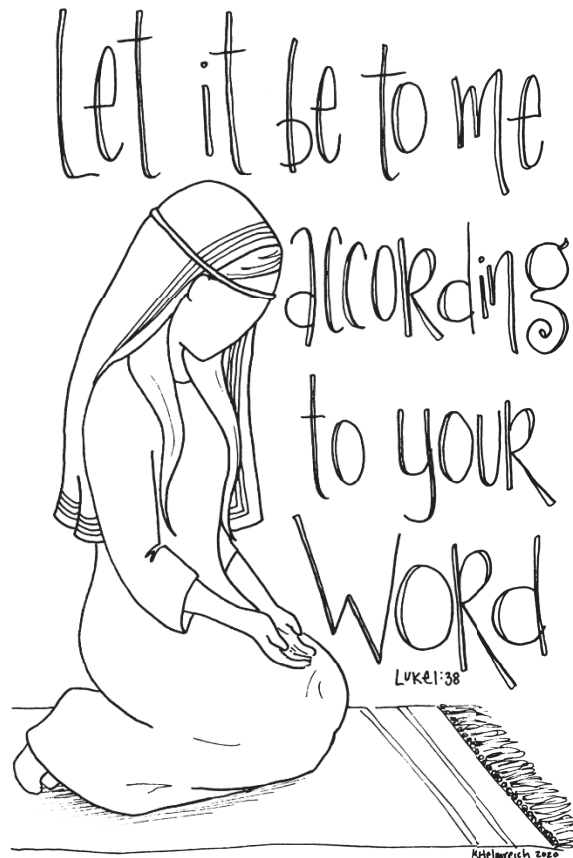 Let it be to me
accoRding
to youR
WoRd
Luke 1:38
KHelmreich 2020